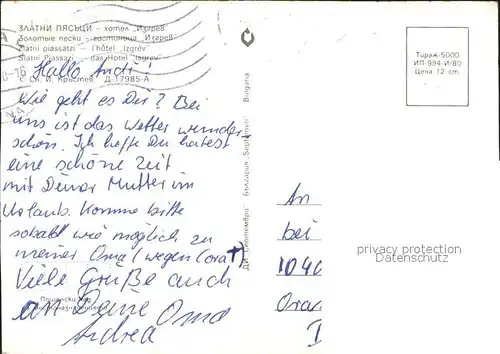 ЗЛАТНИ ПЯСЪЦИ — хотел „Изгрев"
Золотые пески — гостиница „Изгрев"
Zlatni piassatzi — l'hôtel „Izgrév"
Slatni Pjassazi — das Hotel „Isgrev"
Сн. И. Кръстев. Д-17985-А
Hallo Andi!
Wie geht es Dir? Bei
uns ist das Wetter wunder
schön. Ich hoffe Du hattest
eine schöne Zeit
mit Deiner Mutter im
Urlaub. Komme bitte
sobald wie möglich zu
meiner Oma (wegen
Viele Grüße auch
an Deine Oma
Andrea
ДИ „Септември" България „Septemvri" Bulgaria
Тираж-5000
ИП-994-И/80
Цена 12 ст.
An
bei
1040
Oran
privacy protection
Datenschutz
Пощенски код